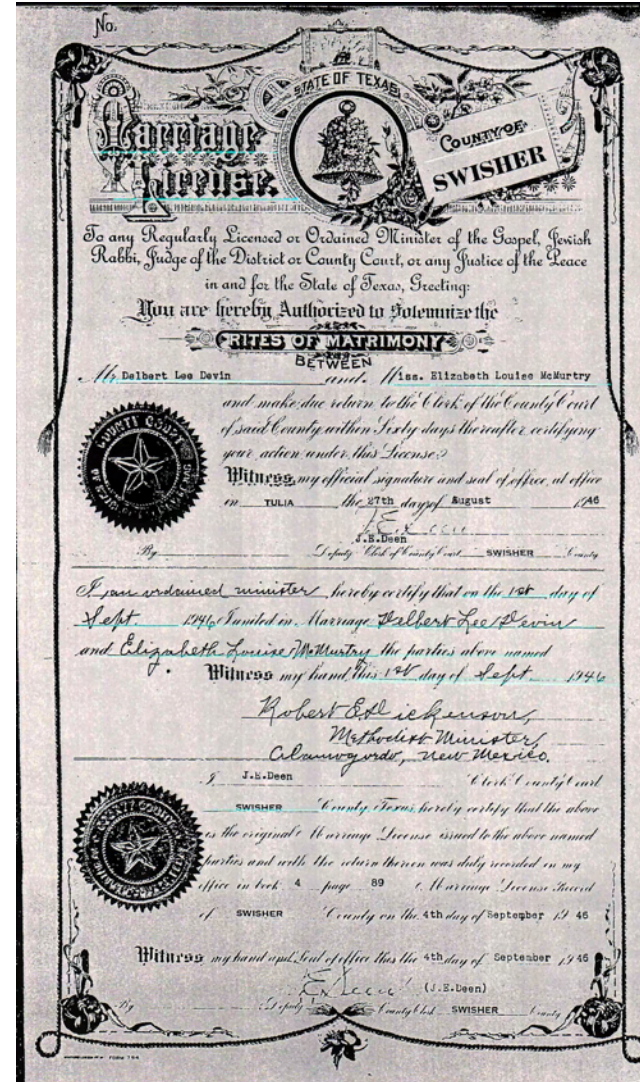 No.
Marriage
License.
STATE OF TEXAS
COUNTY OF
SWISHER
To any Regularly Licensed or Ordained Minister of the Gospel, Jewish
Rabbi, Judge of the District or County Court, or any Justice of the Peace
in and for the State of Texas, Greeting:
You are hereby Authorized to Solemnize the
RITES OF MATRIMONY
BETWEEN
Mr Delbert Lee Devin and Miss. Elizabeth Louise McMurtry
and make due return to the Clerk of the County Court
of said County within Sixty days thereafter certifying
your action under this License.
Witness my official signature and seal of office, at office
in TULIA the 27th day of August 1946
J.E.Deen
By Deputy Clerk of County Court SWISHER County
I, an ordained minister, hereby certify that on the 1st day of
Sept. 1946, I united in Marriage Delbert Lee Devin
and Elizabeth Louise McMurtry the parties above named
Witness my hand, this 1st day of Sept. 1946
Robert E. Dickenson,
Methodist Minister,
Alamogordo, New Mexico.
I J.E.Deen Clerk County Court
SWISHER County, Texas, hereby certify that the above
is the original Marriage License issued to the above named
parties and with the return thereon was duly recorded in my
office in book 4 page 89 Marriage License Record
of SWISHER County on the 4th day of September 1946
Witness my hand and Seal of office this the 4th day of September 1946
(J.E.Deen)
By Deputy County Clerk SWISHER County